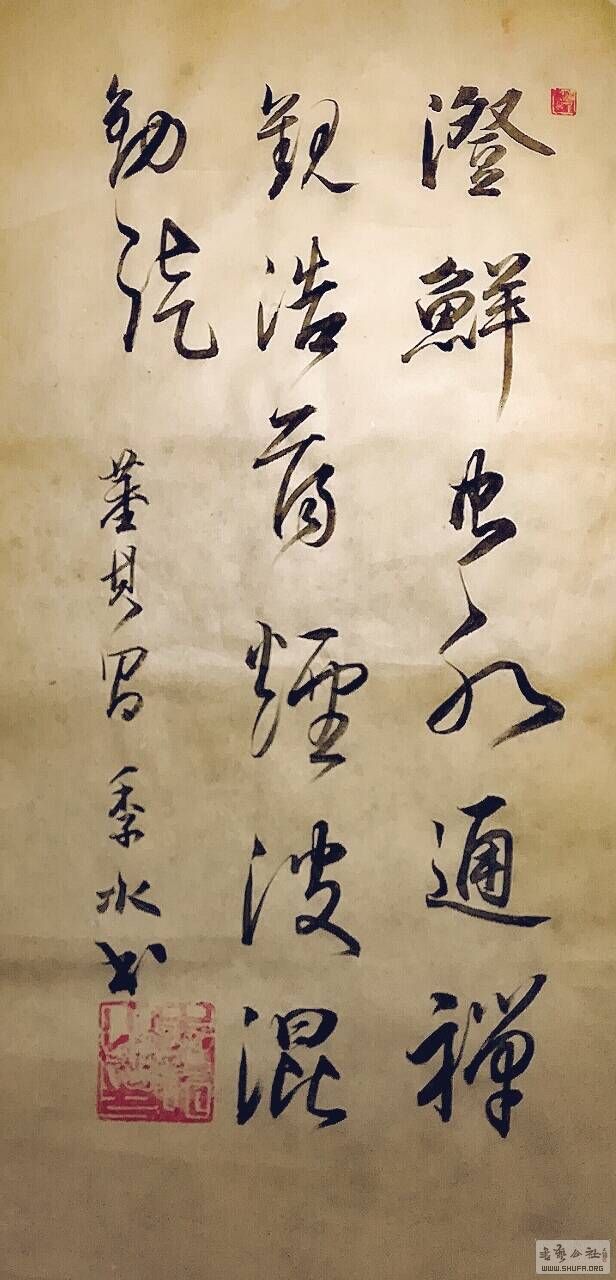 澄鮮空水通禪
觀浩蕩煙波混
劫
董其昌 季水书
書藝公社
WWW.SHUFA.ORG